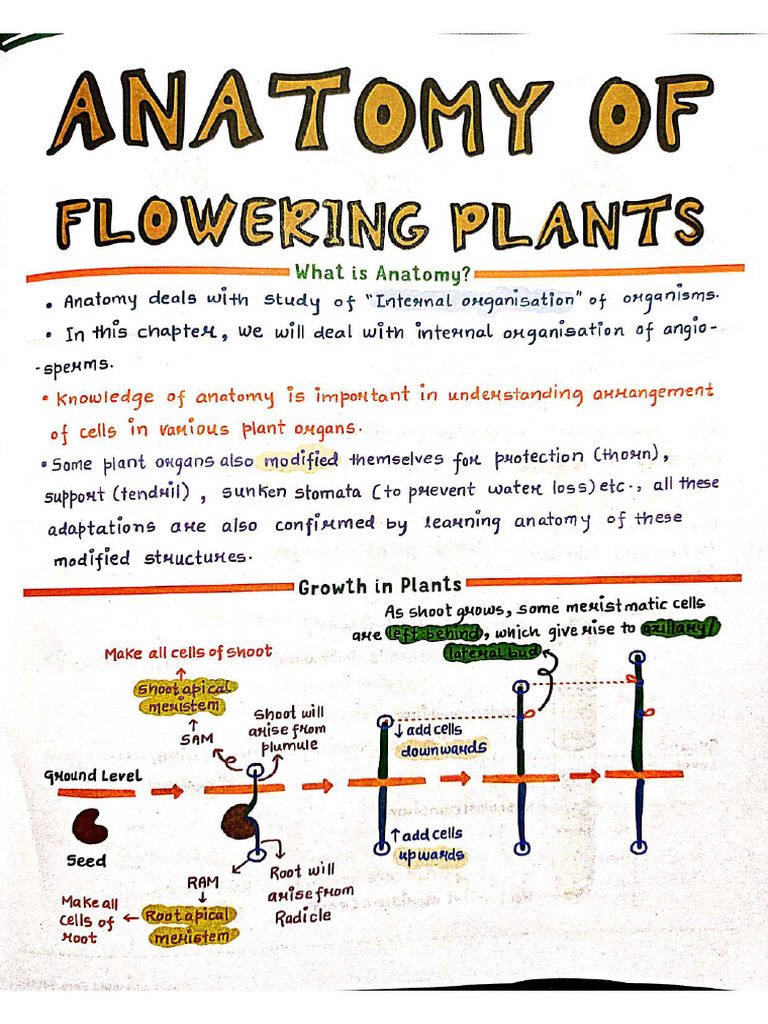 ANATOMY OF
FLOWERING PLANTS
What is Anatomy?
• Anatomy deals with study of "Internal organisation" of organisms.
• In this chapter, we will deal with internal organisation of angio-
-sperms.
• Knowledge of anatomy is important in understanding arrangement
of cells in various plant organs.
• Some plant organs also modified themselves for protection (thorn),
support (tendril), sunken stomata (to prevent water loss) etc., all these
adaptations are also confirmed by learning anatomy of these
modified structures.
Growth in Plants
As shoot grows, some meristmatic cells
are left behind, which give rise to axillary/
lateral bud
Make all cells of shoot
Shoot apical
meristem
SAM
Shoot will
arise from
plumule
↓ add cells
downwards
Ground Level
Seed
↑ add cells
upwards
RAM
Root will
arise from
Radicle
Make all
cells of
root
Root apical
meristem